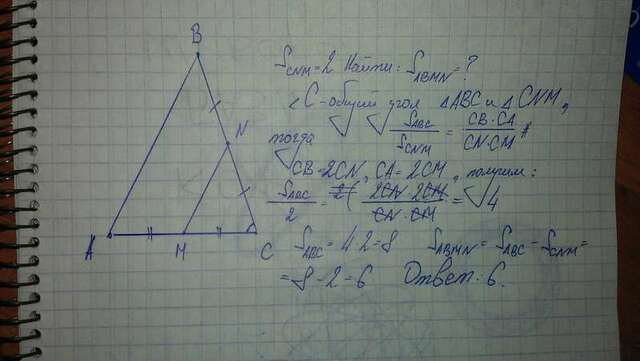 B
N
A
M
C
S_CNM = 2 Найти: S_ABMN = ?
∠C - общий угол △ABC и △CNM,
тогда S_ABC / S_CNM = CB·CA / CN·CM
CB = 2CN, CA = 2CM, получим:
S_ABC / 2 = 2CN·2CM / CN·CM = 4
S_ABC = 4·2 = 8 S_ABMN = S_ABC - S_CNM =
= 8 - 2 = 6 Ответ: 6.